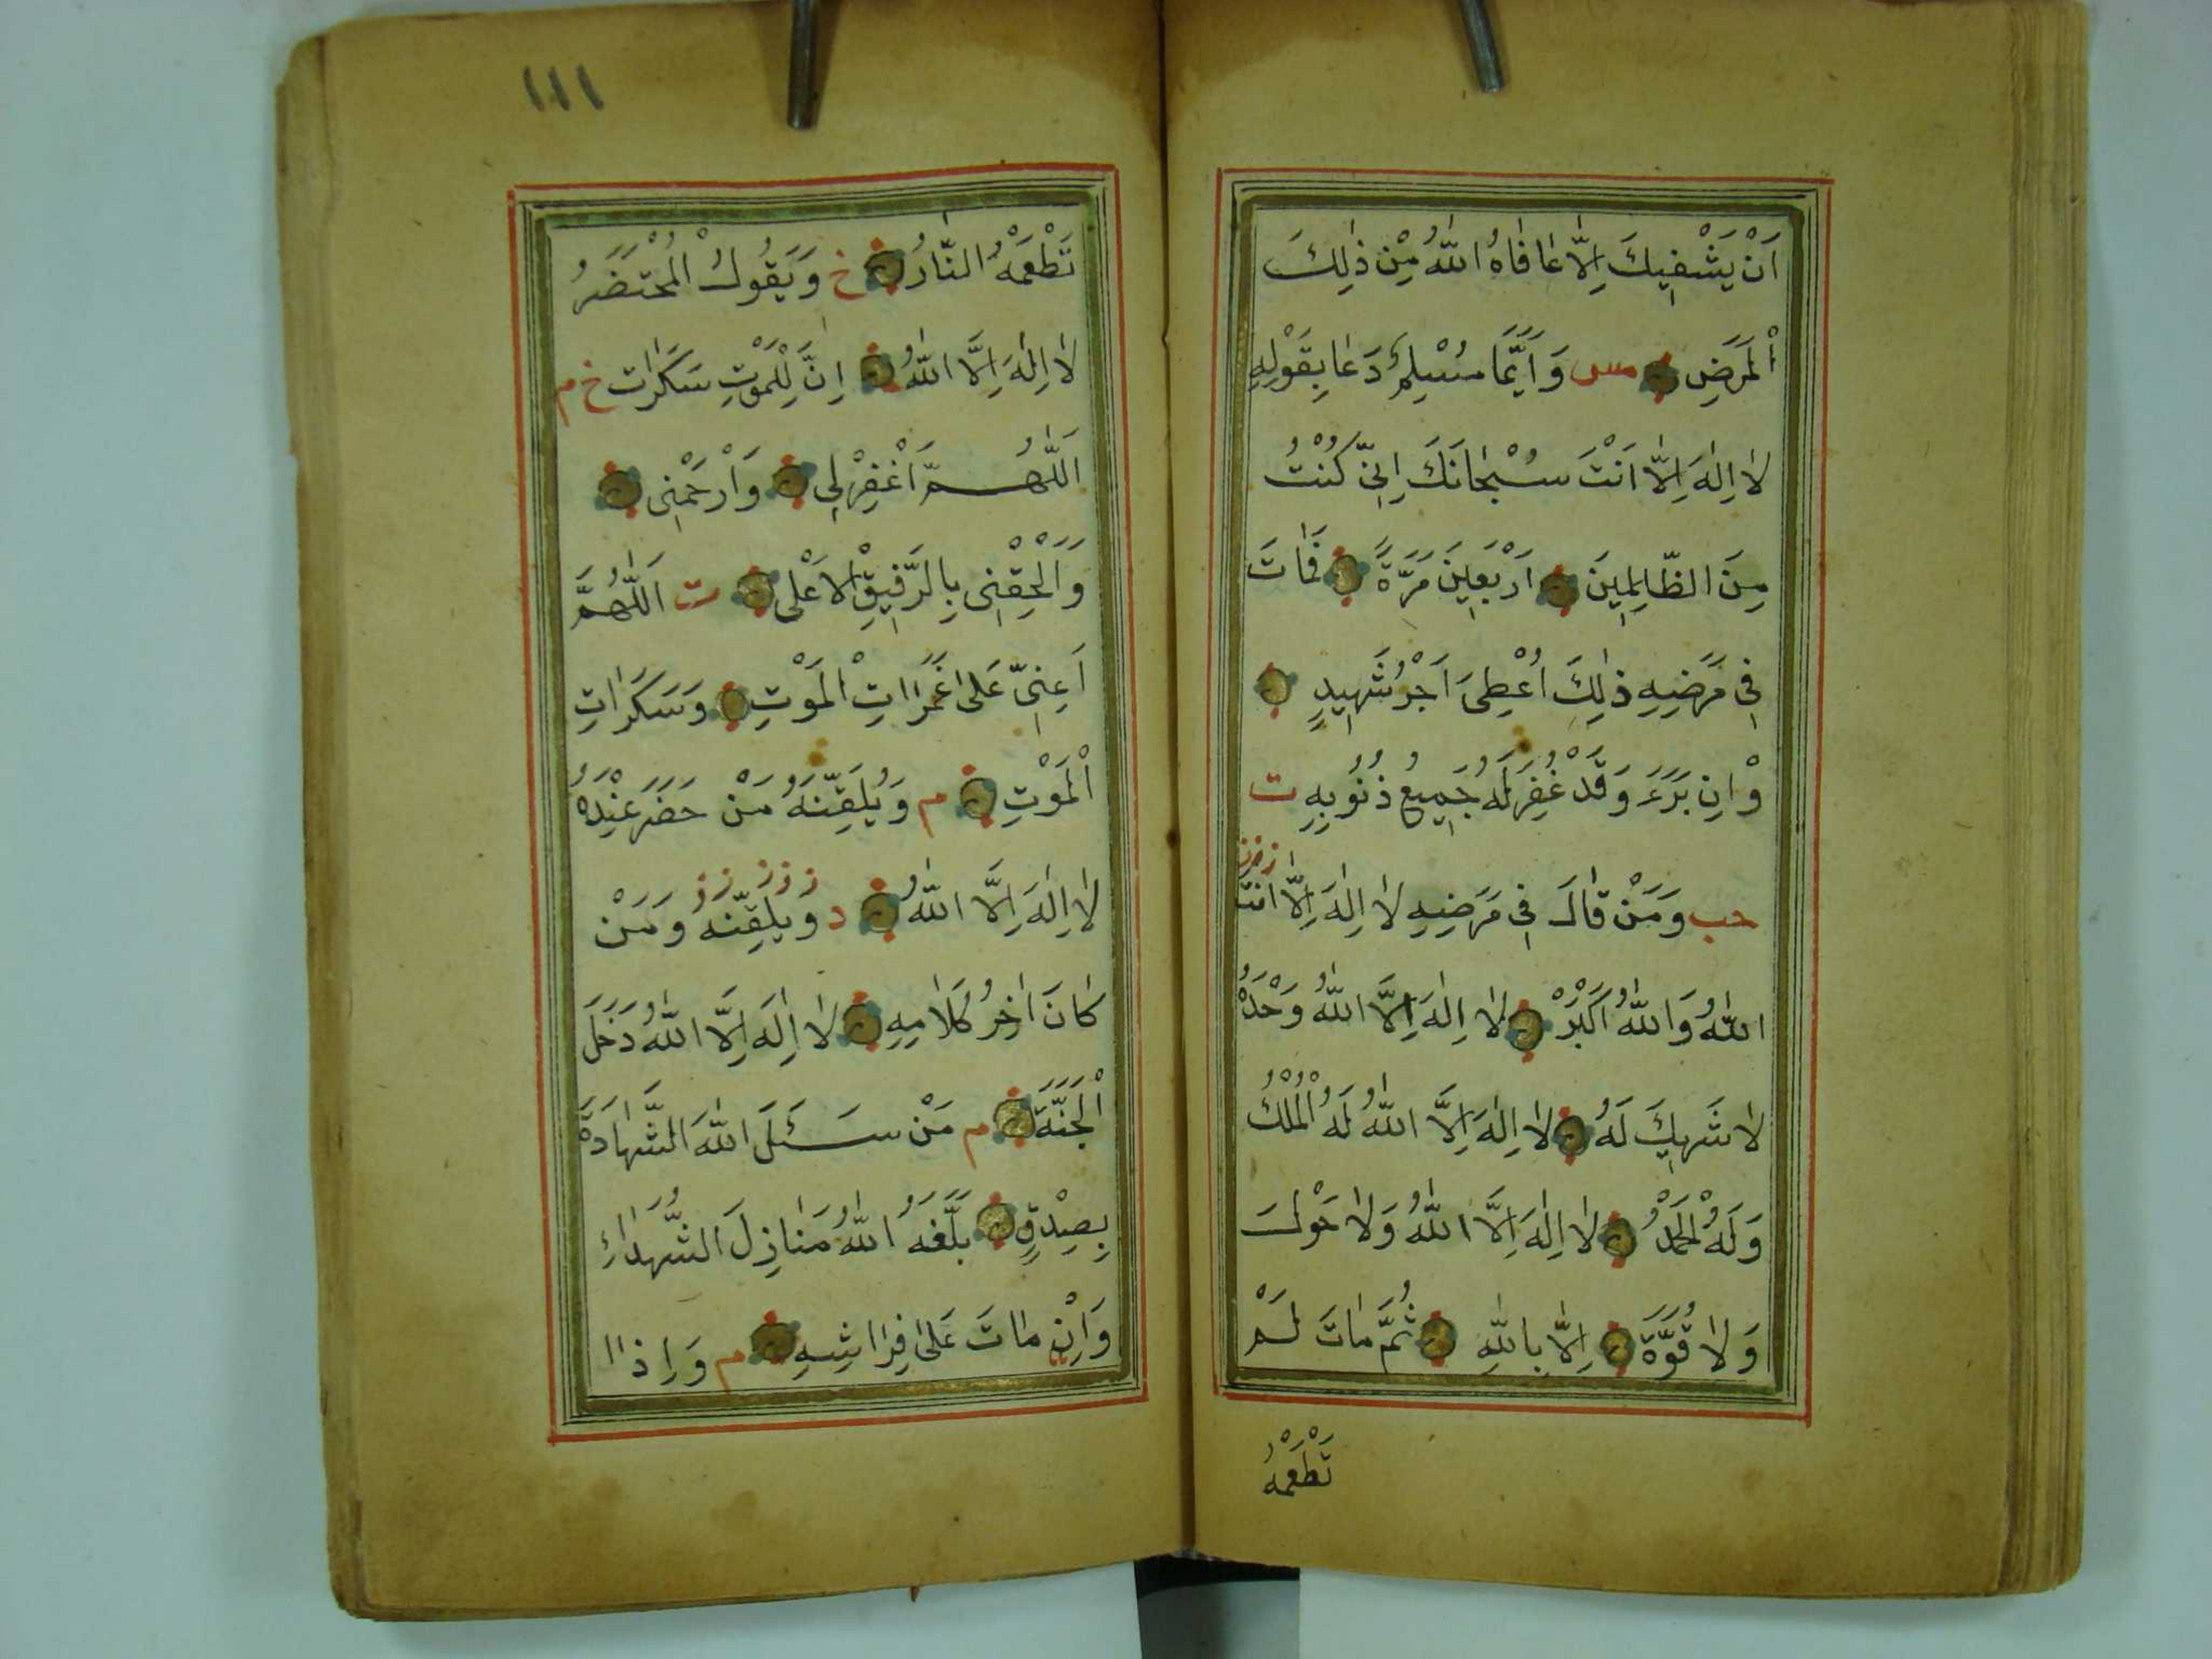 اَنْ يَشْفِيكَ اِلَّا عَافَاهُ اللّٰهُ مِنْ ذٰلِكَ
الْمَرَضِ مس وَاَيَّمَا مُسْلِمٍ دَعَا بِقَوْلِهِ
لَا اِلٰهَ اِلَّا اَنْتَ سُبْحَانَكَ اِنِّي كُنْتُ
مِنَ الظَّالِمِينَ اَرْبَعِينَ مَرَّةً فَمَاتَ
فِي مَرَضِهِ ذٰلِكَ اُعْطِيَ اَجْرُ شَهِيدٍ
وْاِنْ بَرَءَ وَقَدْ غُفِرَ لَهُ جَمِيعُ ذُنُوبِهِ ت
حب وَمَنْ قَالَ فِي مَرَضِهِ لَا اِلٰهَ اِلَّا انت
اللّٰهُ وَاللّٰهُ اَكْبَرْ لَا اِلٰهَ اِلَّا اللّٰهُ وَحْدَهُ
لَا شَرِيكَ لَهُ لَا اِلٰهَ اِلَّا اللّٰهُ لَهُ الْمُلْكُ
وَلَهُ الْحَمْدُ لَا اِلٰهَ اِلَّا اللّٰهُ وَلَا حَوْلَ
وَلَا قُوَّةَ اِلَّا بِاللّٰهِ ثُمَّ مَاتَ لَمْ
تَطْعَمْهُ
١١١
تَطْعَمْهُ النَّارُ خ وَيَقُولُ الْمُحْتَضَرُ
لَا اِلٰهَ اِلَّا اللّٰهُ اِنَّ لِلْمَوْتِ سَكَرَات خ م
اَللّٰهُمَّ اغْفِرْلِي وَارْحَمْنِي
وَالْحِقْنِي بِالرَّفِيقِ الْاَعْلٰى ت اَللّٰهُمَّ
اَعِنِّي عَلٰى غَمَرَاتِ الْمَوْتِ وَسَكَرَاتِ
الْمَوْتِ م وَيُلَقِّنَهُ مَنْ حَضَرَ عِنْدَهُ
لَا اِلٰهَ اِلَّا اللّٰهُ د ويلقنه وَمَنْ
كَانَ اٰخِرُ كَلَامِهِ لَا اِلٰهَ اِلَّا اللّٰهُ دَخَلَ
الْجَنَّةَ م مَنْ سَئَلَ اللّٰهَ الشَّهَادَةَ
بِصِدْقٍ بَلَّغَهُ اللّٰهُ مَنَازِلَ الشُّهَدَاءِ
وَاِنْ مَاتَ عَلٰى فِرَاشِهِ م وَاِذَا